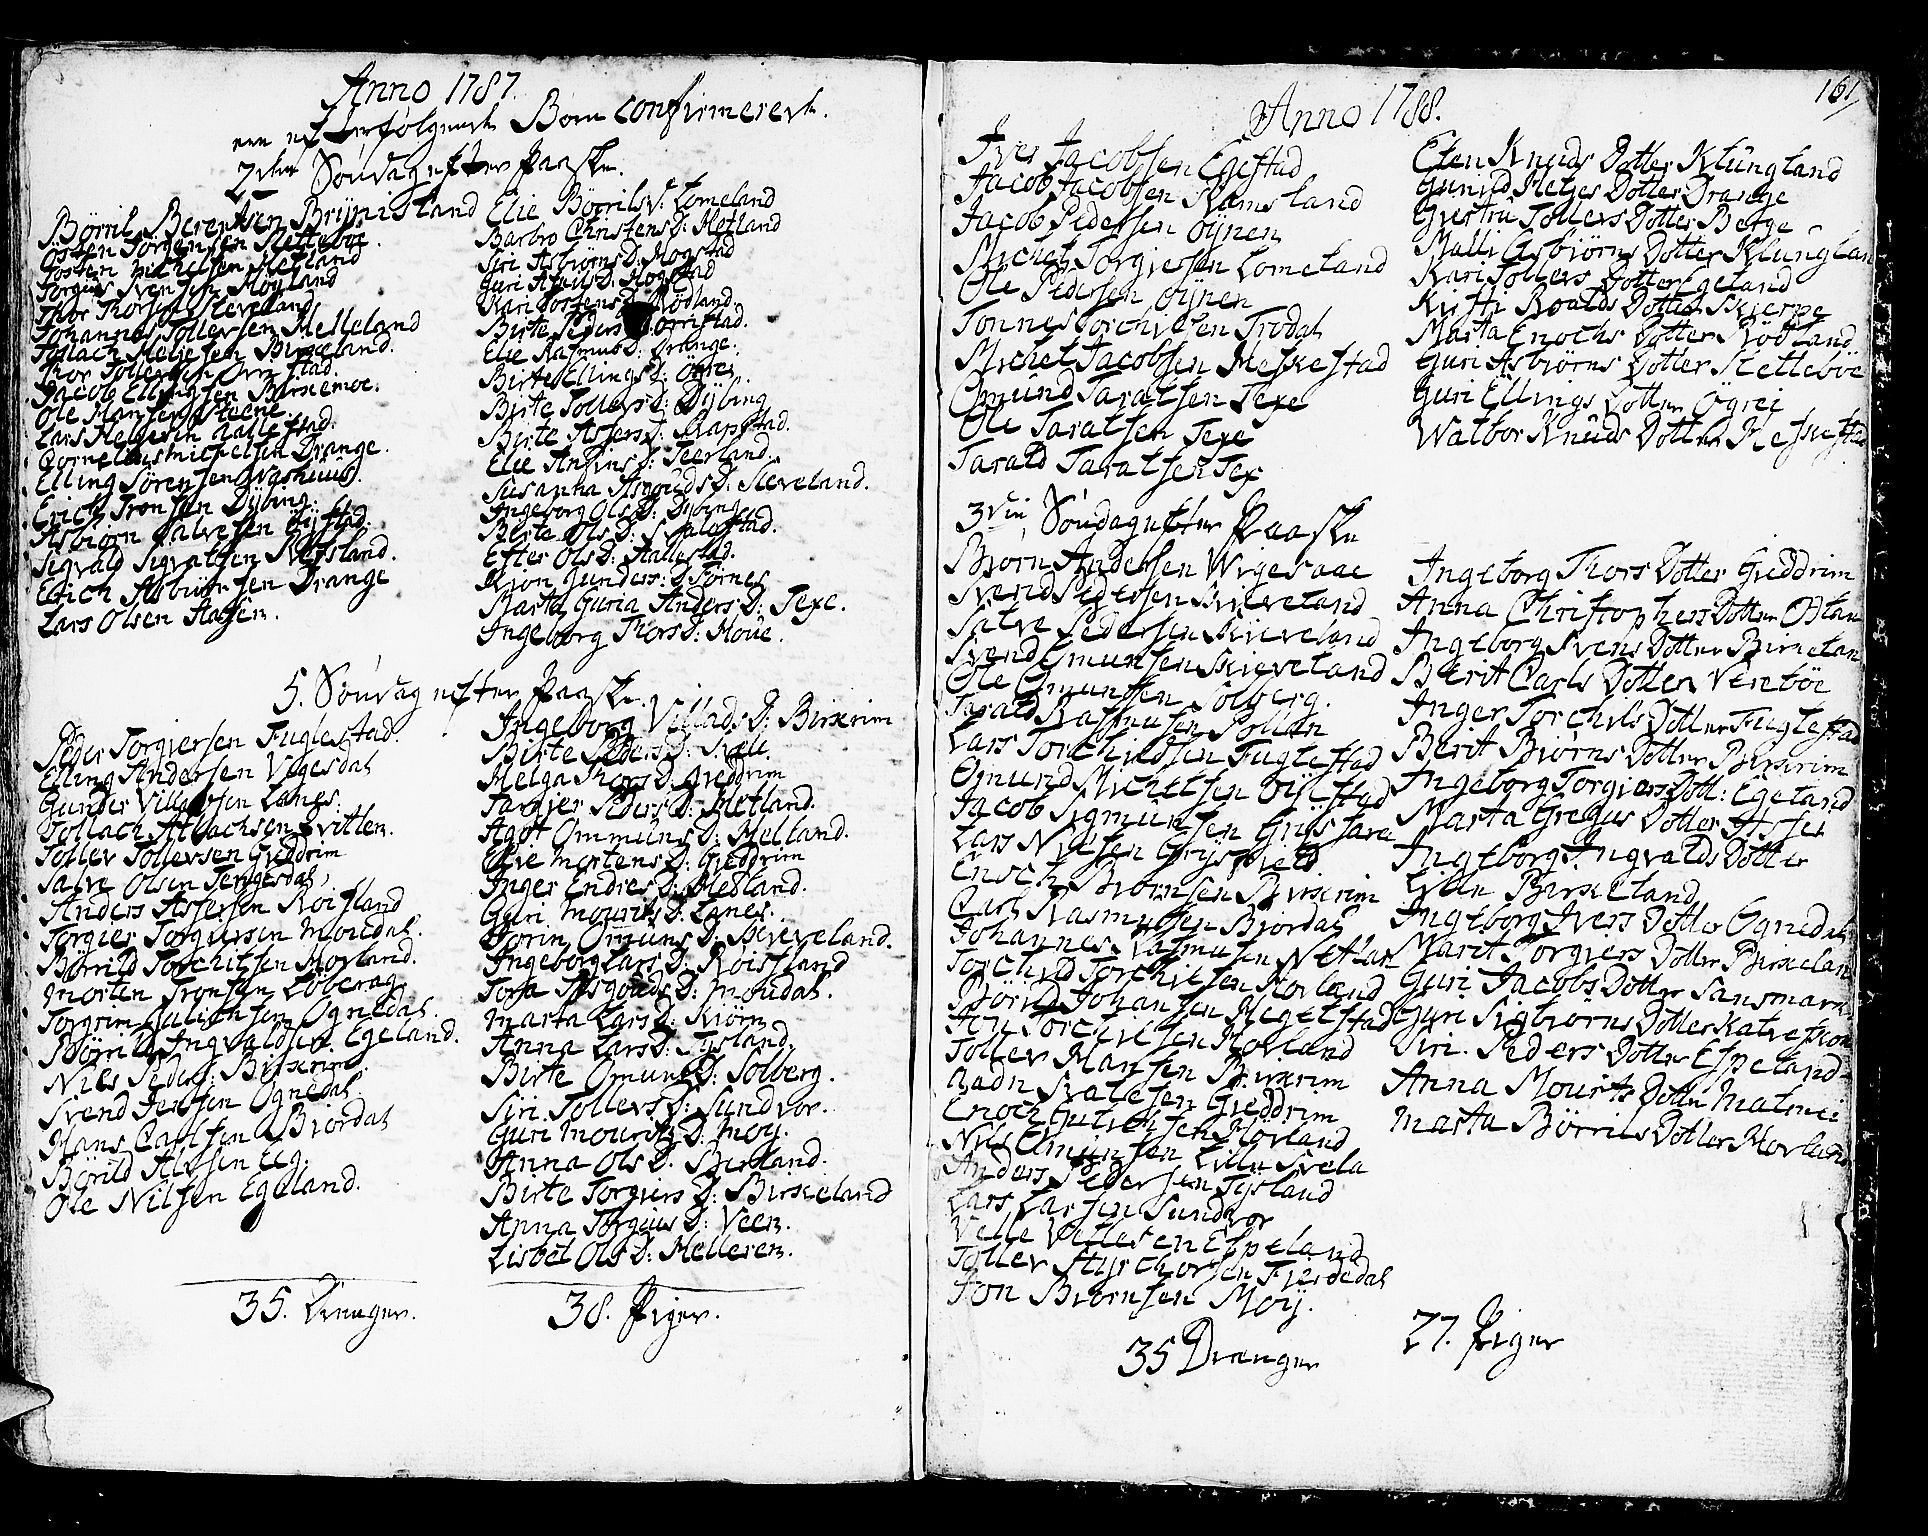 Anno 1787.
ere efterfølgende Børn confirmerede.
2den Søndag efter Paaske.
Børril Berentsen Brÿnisland
Osten Jörgensen Slettebøe.
Josten Michelsen Hetland
Torgius Svensen Høgland
Thor Thorsen Sleveland.
Johannes Tollevsen Helleland
Tollach Meljesen Birkeland.
Thor Tollevsen Orrestad.
Jacob Ellingsen Birkemoe.
Ole Hansen Steene.
Lars Helgesen Aallestad.
Cornelius Michelsen Drange.
Elling Sørensen Washuus.
Erich Tronsen Dÿbing.
Asbiørn Salvesen Øÿstad.
Segvald Segvatsen Refsland.
Erich Asbiörnsen Drange
Lars Olsen Aasen.
Elie BörrilsD: Lomeland
Barbro ChristensD: Hetland
Siri AsbiørnsD: Mogstad
Guri AsnusD: Mogstad
Kari JostensD: Rødland.
Birte PedersD: Orrestad.
Elie RasmusD: Drange.
Birte EllingsD: Øgrei.
Birte TollevsD: Dÿbing
Birte AssersD: Rapstad.
Elie AnfinsD: Teerland.
Susanna AsgoudsD: Sleveland.
Ingeborg OlsD: Dÿbing
Berte OlsD: Aalestad.
Ester OlsD: Aallestad.
Kion Gunders:D: Tørnes
Marta Guria AndersD: Texe.
Ingeborg ThorsD: Houe.
5. Søndag efter Paaske.
Peder Torgiersen Fuglestad.
Elling Andersen Vegesdal
Gunder Villadsen Lanes.
Tollach Atlachsen Qvitlem.
Tollev Tollevsen Greddrim
Salve Olsen Tengesdal,
Anders Assersen Roisland
Torgier Torgiersen Moudal.
Børrild Torchilsen Hovland.
Morten Tronsen Loberag
Torgrim Ognedal.
Børrild Ingvaldsen Egeland.
Niels Peders: Birkrim.
Svend Jensen Ognedal
Hans Carlsen Biordal
Børild Alvsen Eeg.
Ole Nilsen Egeland.
Ingeborg VilladsD: Birkrim
Birte PedersD: Svele
Helga ThorsD: Greddrim
Tarjer PedersD: Hetland.
Agot OmmunsD: Helland.
Elie MortensD: Greddrim
Inger EndresD: Hedland.
Guri MouritsD: Lanes.
Torin OmunsD: Skieveland.
Ingeborg LarsD: Roissland
Tora AsgoudsD: Moudal.
Marta LarsD: Kiørn
Anna LarsD: Tÿsland.
Birte OmunsD: Solberg.
Siri TollevsD: Sundvor.
Guri MouritsD: Moÿ.
Anna OlsD: Birkland.
Birte TorgiersD: Birkeland
Anna TorgiersD: Veen.
Lisbet OlsD: Helleren.
35. Drenger.
38. Piger.
161
Anno 1788.
Iver Jacobsen Egestad
Jacob Jacobsen Ramsland
Jacob Pedersen Øÿnen
Michel Torgiersen Lomeland
Ole Pedersen Øÿnen
Tonnes Torchilsen Trodal
Michel Jacobsen Heskestad
Omund Taraldsen Texe
Ole Taratsen Texe
Tarald Taratsen Tex
Elen Knuds Dotter Klungland
Gunild Helges Dotter Drange
Giertru Tollevs Dotter Berge
Malli Asbiørns Dotter Klunglan
Kari Tollevs Dotter Egeland
Kirsti Roalds Dotter Skierpe
Marta Enochs Dotter Rödland
Guri Asbiørns Dotter Slettebøe
Guri Ellings Dotter Ögrei
Walbor Knuds Dotter Heskestad
3die Søndag efter Paaske
Biørn Andersen Wigesaae
Svend Pedersen Skieveland
Salve Pedersen Skieveland
Svend Omunsen Skieveland
Ole Omunssen Solberg.
Tarald Rasmusen Pollen
Lars Torchildsen Fuglestad
Ogmund Michelsen Øÿstad
Jacob Sigmunsen
Lars Nilsen
Enoch Biørnsen Birkrim
Carl Rasmussen Biordal
Johannes Rasmusen Netlan
Torchild Torchilsen Hovland
Børild Johansen Hegelstad
Jon Torchilsen Hovland
Tollev Hansen Birkrim
Aadn Svalesen Greddrim
Enoch Hovland
Nils Omunsen Lille Svela
Anders Pedersen Tÿsland
Lars Larsen Sundvor
Velle Vellesen Espeland
Tollev Stÿrchorsen Tierdedal
Jon Biørnsen Moÿ.
Ingeborg Thors Dotter Greddrim
Anna Christophers Dotter
Ingeborg Svens Dotter Birkelan
Berit Carls Dotter Verebøe
Inger Torchils Dotter Fuglestad
Berit Biørns Dotter Birkrim
Ingeborg Torgiers Dott: Egeland
Marta Gregus Dotter
Ingeborg Ingvalds Dotter
Lille Birkeland
Ingeborg Ivers Dotter Ognedal
Marit Torgiers Dotter Birkelan
Guri Jacobs Dotter Sansmark
Guri Sigbiørns Dotter
Siri. Peders Dotter Espeland
Anna Mourits Dotter Malmei
Marta Börrils Dotter Hovland
35 Drenger
27. Piger